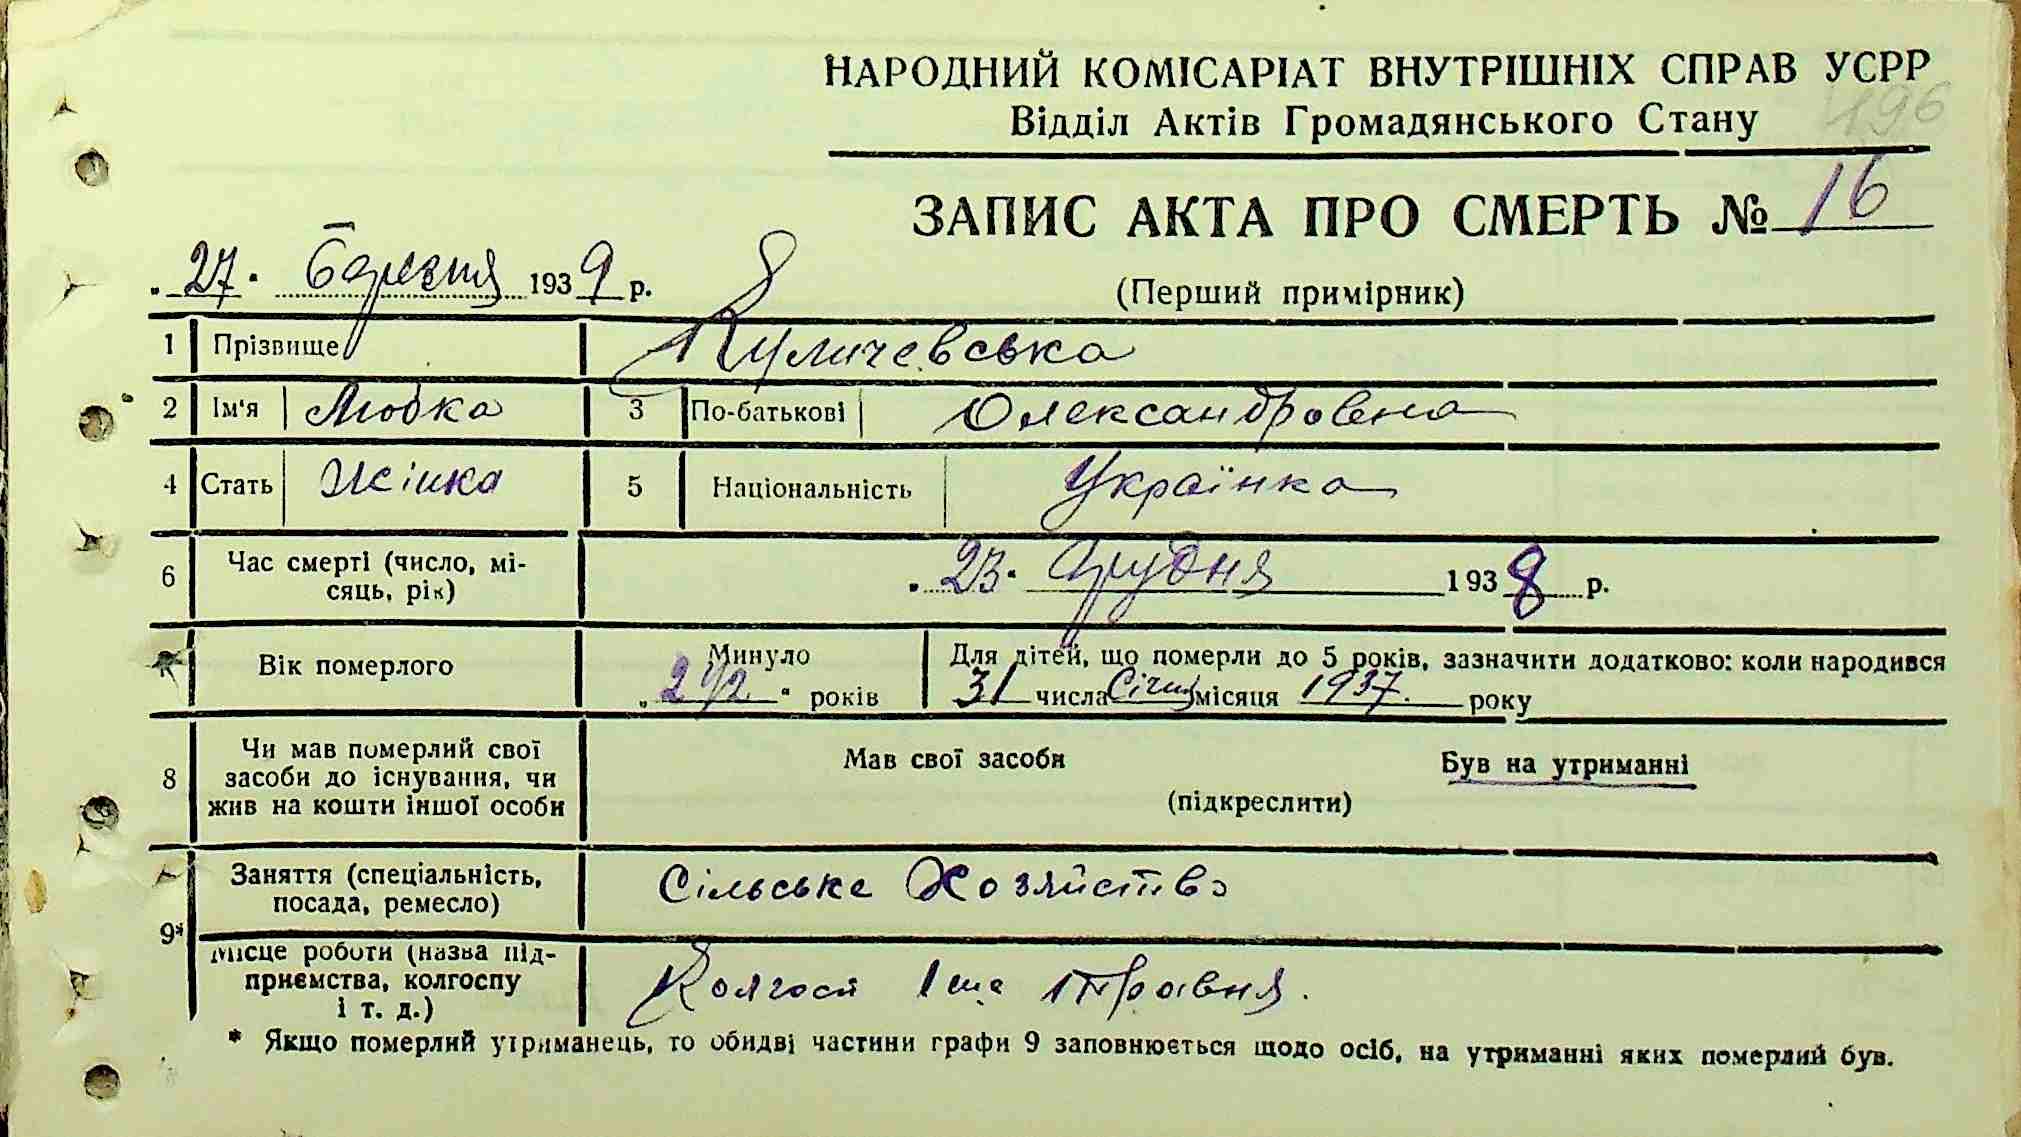 НАРОДНИЙ КОМІСАРІАТ ВНУТРІШНІХ СПРАВ УСРР
196
Відділ Актів Громадянського Стану
ЗАПИС АКТА ПРО СМЕРТЬ № 16
„27" березня 1939 р.
(Перший примірник)
1 Прізвище Куличевська
2 Ім'я Любка 3 По-батькові Олександровна
4 Стать Жінка 5 Національність Українка
6 Час смерті (число, мі-
сяць, рік)
„23" Грудня 1938 р.
Вік померлого
Минуло
„2 1/2" років
Для дітей, що померли до 5 років, зазначити додатково: коли народився
31 числа Січня місяця 1937 року
8 Чи мав померлий свої
засоби до існування, чи
жив на кошти іншої особи
Мав свої засоби Був на утриманні
(підкреслити)
9* Заняття (спеціальність,
посада, ремесло)
Сільське Хозяйство
Місце роботи (назва під-
приємства, колгоспу
і т. д.)
Колгосп 1ше Травня.
* Якщо померлий утриманець, то обидві частини графи 9 заповнюється щодо осіб, на утриманні яких померлий був.